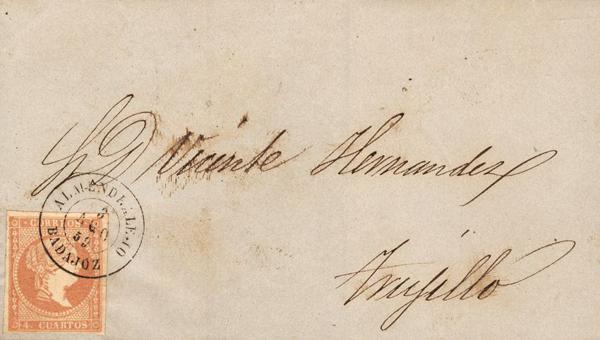 Sr D Vicente Hernandez
Trujillo
ALMENDRALEJO
3
AGO
59
BADAJOZ
CORREOS
4 CUARTOS